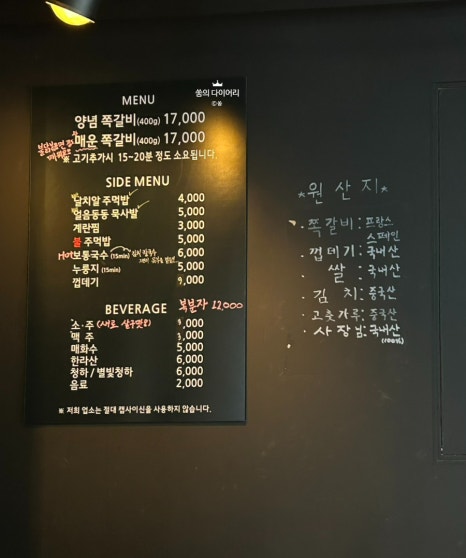 쏭의 다이어리
©쏭
MENU
양념 쪽갈비(400g) 17,000
매운 쪽갈비(400g) 17,000
※ 고기추가시 15~20분 정도 소요됩니다.
SIDE MENU
날치알 주먹밥 4,000
얼음동동 묵사발 5,000
계란찜 3,000
불 주먹밥 5,000
Hot 보통국수 (15min) 6,000
누룽지 (15min) 5,000
껍데기 9,000
BEVERAGE 복분자 12,000
소 · 주 (새로
맥 주
매화수 5,000
한라산 6,000
청하 / 별빛청하 6,000
음료 2,000
※ 저희 업소는 절대 캡사이신을 사용하지 않습니다.
*원산지*
· 쪽갈비 : 프랑스
스페인
· 껍데기 : 국내산
· 쌀 : 국내산
· 김치 : 중국산
· 고춧가루 : 중국산
· 사장님 : 국내산
(100%)